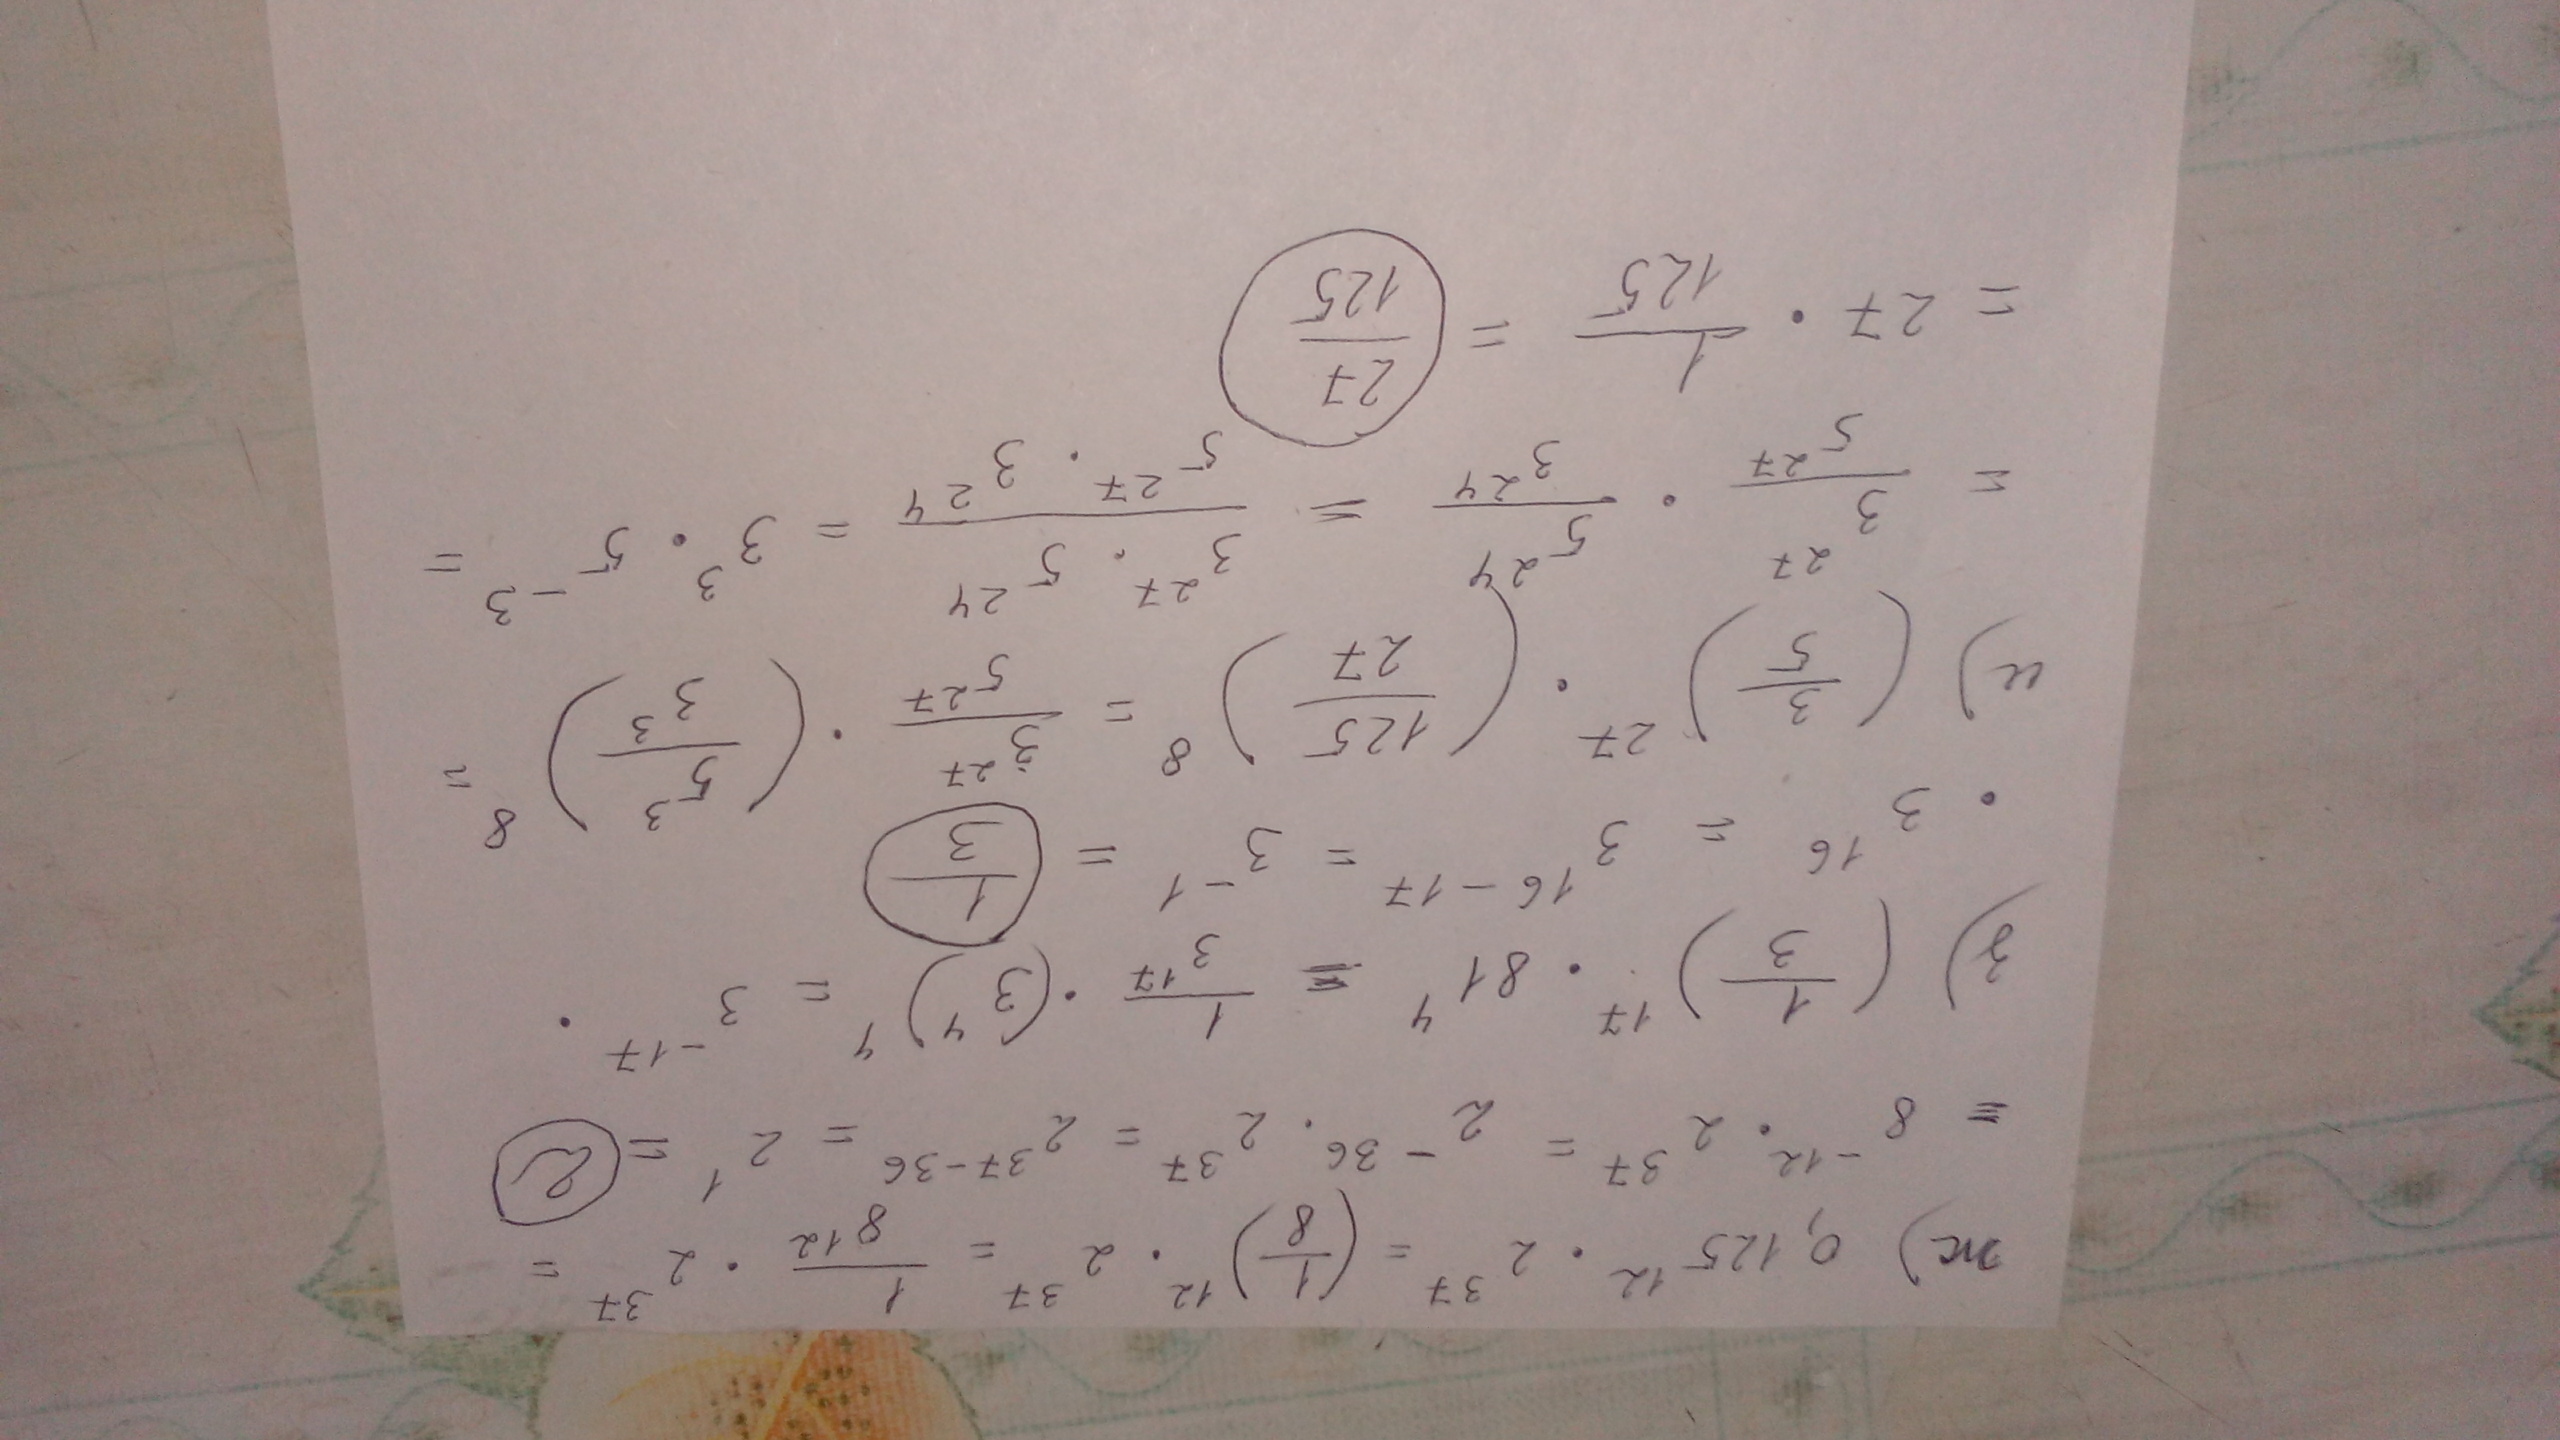 ж) 0,125^12 · 2^37 = (1/8)^12 · 2^37 = 1/8^12 · 2^37 =
= 8^-12 · 2^37 = 2^-36 · 2^37 = 2^37-36 = 2^1 = 2
з) (1/3)^17 · 81^4 = 1/3^17 · (3^4)^4 = 3^-17 ·
· 3^16 = 3^16-17 = 3^-1 = 1/3
и) (3/5)^27 · (125/27)^8 = 3^27/5^27 · (5^3/3^3)^8 =
= 3^27/5^27 · 5^24/3^24 = 3^27 · 5^24/5^27 · 3^24 = 3^3 · 5^-3 =
= 27 · 1/125 = 27/125